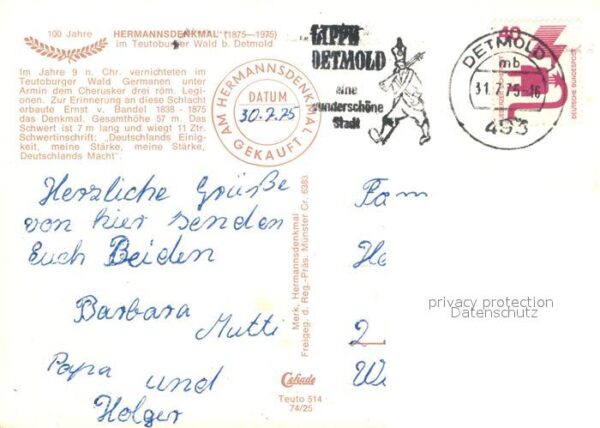 100 Jahre HERMANNSDENKMAL (1875—1975)
im Teutoburger Wald b. Detmold
Im Jahre 9 n. Chr. vernichteten im
Teutoburger Wald Germanen unter
Armin dem Cherusker drei röm. Legi-
onen. Zur Erinnerung an diese Schlacht
erbaute Ernst v. Bandel 1838 - 1875
das Denkmal. Gesamthöhe 57 m. Das
Schwert ist 7 m lang und wiegt 11 Ztr.
Schwertinschrift: „Deutschlands Einig-
keit, meine Stärke, meine Stärke,
Deutschlands Macht".
AM HERMANNSDENKMAL
DATUM
30.7.75
GEKAUFT
LIPPE
DETMOLD
eine
wunderschöne
Stadt
DETMOLD
mb
31.7.75-16
493
40
DEUTSCHE BUNDESPOST
Herzliche Grüße
von hier senden
Euch Beiden
Barbara
Mutti
Papa und
Holger
Merk, Hermannsdenkmal
Freigeg. d. Reg.-Präs. Münster Cr. 6383
Fam
He
2
We
privacy protection
Datenschutz
Cekade
Teuto 514
74/25